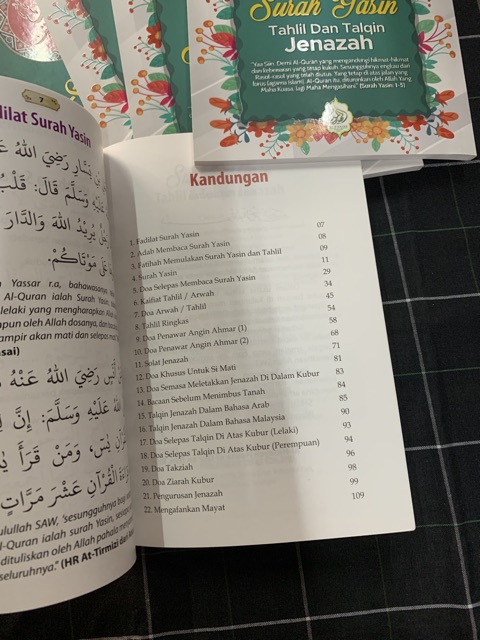 Surah Yasin
Tahlil Dan Talqin
Jenazah
"Yaa Siin. Demi Al-Quran yang mengandungi hikmat-hikmat
dan kebenaran yang tetap kukuh. Sesungguhnya engkau dari
Rasul-rasul yang telah diutus. Yang tetap di atas jalan yang
lurus (agama Islam). Al-Quran itu, diturunkan oleh Allah Yang
Maha Kuasa, lagi Maha Mengasihani." (Surah Yasin: 1-5)
7
dilat Surah Yasin
يَسَارٍ رَضِيَ اللهُ
عَلَيْهِ وَسَلَّمَ قَالَ: قَلْبُ
يُرِيْدُ اللهَ وَالدَّارَ
عَلَى مَوْتَاكُمْ.
Yassar r.a, bahawasanya
Al-Quran ialah Surah Yasin,
lelaki yang mengharapkan
mpun oleh Allah dosanya, dan
ampir akan mati dan selepas
sai)
رَضِيَ اللهُ عَنْهُ
اللهُ عَلَيْهِ وَسَلَّمَ: إِنَّ
يس، وَمَنْ قَرَأَ
الْقُرْآنِ عَشْرَ مَرَّاتٍ
ulullah SAW, 'sesungguhnya bagi
l-Quran ialah surah Yasin,
dituliskan oleh Allah pahala
seluruhnya." (HR At-Tirmizi dari
Kandungan
1. Fadilat Surah Yasin 07
2. Adab Membaca Surah Yasin 08
3. Fatihah Memulakan Surah Yasin dan Tahlil 09
4. Surah Yasin 11
5. Doa Selepas Membaca Surah Yasin 29
6. Kaifiat Tahlil / Arwah 34
7. Doa Arwah / Tahlil 45
8. Tahlil Ringkas 54
9. Doa Penawar Angin Ahmar (1) 58
10. Doa Penawar Angin Ahmar (2) 68
11. Solat Jenazah 71
12. Doa Khusus Untuk Si Mati 81
13. Doa Semasa Meletakkan Jenazah Di Dalam Kubur 83
14. Bacaan Sebelum Menimbus Tanah 84
15. Talqin Jenazah Dalam Bahasa Arab 85
16. Talqin Jenazah Dalam Bahasa Malaysia 90
17. Doa Selepas Talqin Di Atas Kubur (Lelaki) 93
18. Doa Selepas Talqin Di Atas Kubur (Perempuan) 94
19. Doa Takziah 96
20. Doa Ziarah Kubur 98
21. Pengurusan Jenazah 99
22. Mengafankan Mayat 109